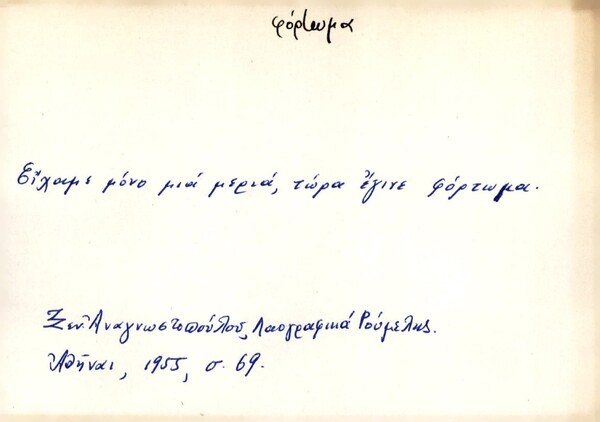 φόρτωμα
Εἴχαμε μόνο μιά μεριά, τώρα ἔγινε φόρτωμα.
Ξεν. Ἀναγνωστοπούλου, Λαογραφικά Ρούμελης.
Ἀθῆναι, 1955, σ. 69.